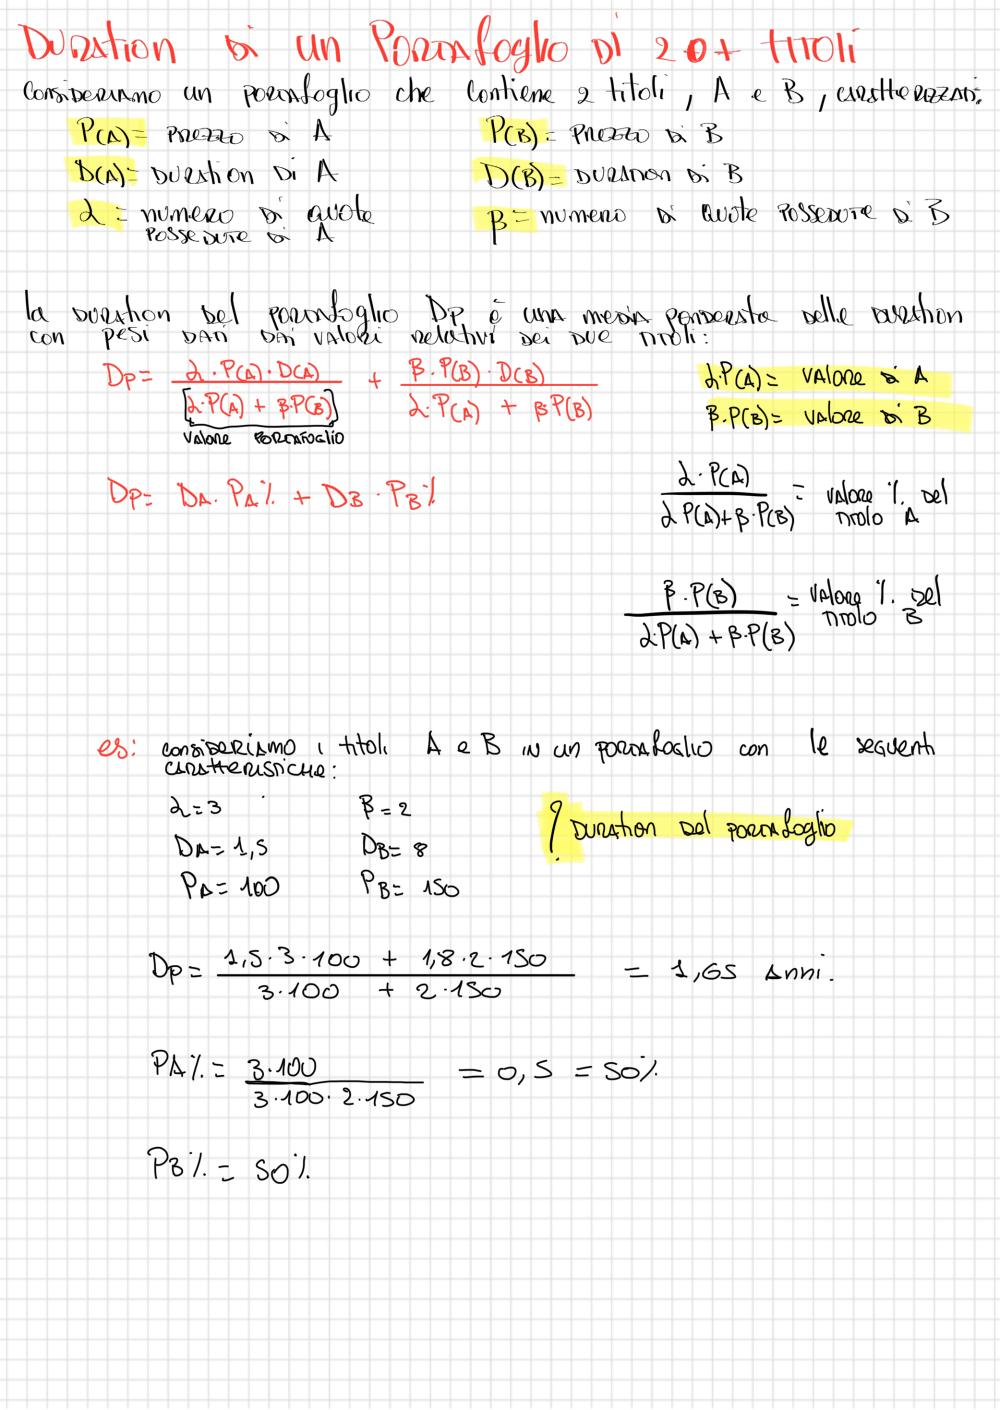 DURATION DI UN PORTAFOGLIO DI 2 O + TITOLI
CONSIDERIAMO un PORTAFOGLIO che contiene 2 titoli, A e B, CARATTERIZZATI:
P(A) = PREZZO DI A
P(B) = PREZZO DI B
D(A) = DURATION DI A
D(B) = DURATION DI B
α = NUMERO DI QUOTE POSSEDUTE DI A
β = NUMERO DI QUOTE POSSEDUTE DI B
la DURATION DEL PORTAFOGLIO DP è una MEDIA PONDERATA delle DURATION
con pesi DATI DAI VALORI relativi DEI DUE TITOLI:
DP = α·P(A)·D(A) / [α·P(A) + β·P(B)] + β·P(B)·D(B) / α·P(A) + β·P(B)
VALORE PORTAFOGLIO
α·P(A) = VALORE DI A
β·P(B) = VALORE DI B
DP = DA·PA% + DB·PB%
α·P(A) / αP(A)+β·P(B) = VALORE % DEL TITOLO A
β·P(B) / α·P(A) + β·P(B) = VALORE % DEL TITOLO B
es: CONSIDERIAMO i titoli A e B IN un PORTAFOGLIO con le seguenti
CARATTERISTICHE:
α=3 β=2
? DURATION DEL PORTAFOGLIO
DA = 1,5 DB = 8
PA = 100 PB = 150
DP = 1,5·3·100 + 1,8·2·150 / 3·100 + 2·150 = 1,65 ANNI.
PA% = 3·100 / 3·100·2·150 = 0,5 = 50%
PB% = 50%